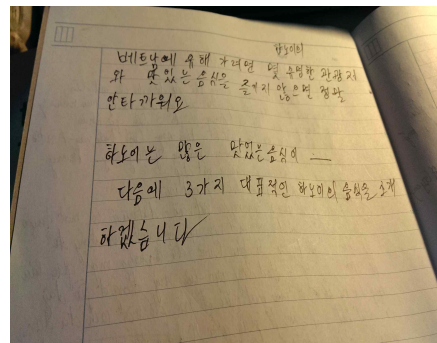 하노이의
베트남에 유해 가려면 몇 유명한 관광지
와 맛있는 음식을 즐기지 않으면 정말
안타까워요
하노이는 많은 맛있는 음식이
다음에 3가지 대표적인 하노이의 음식을 소개
하겠습니다